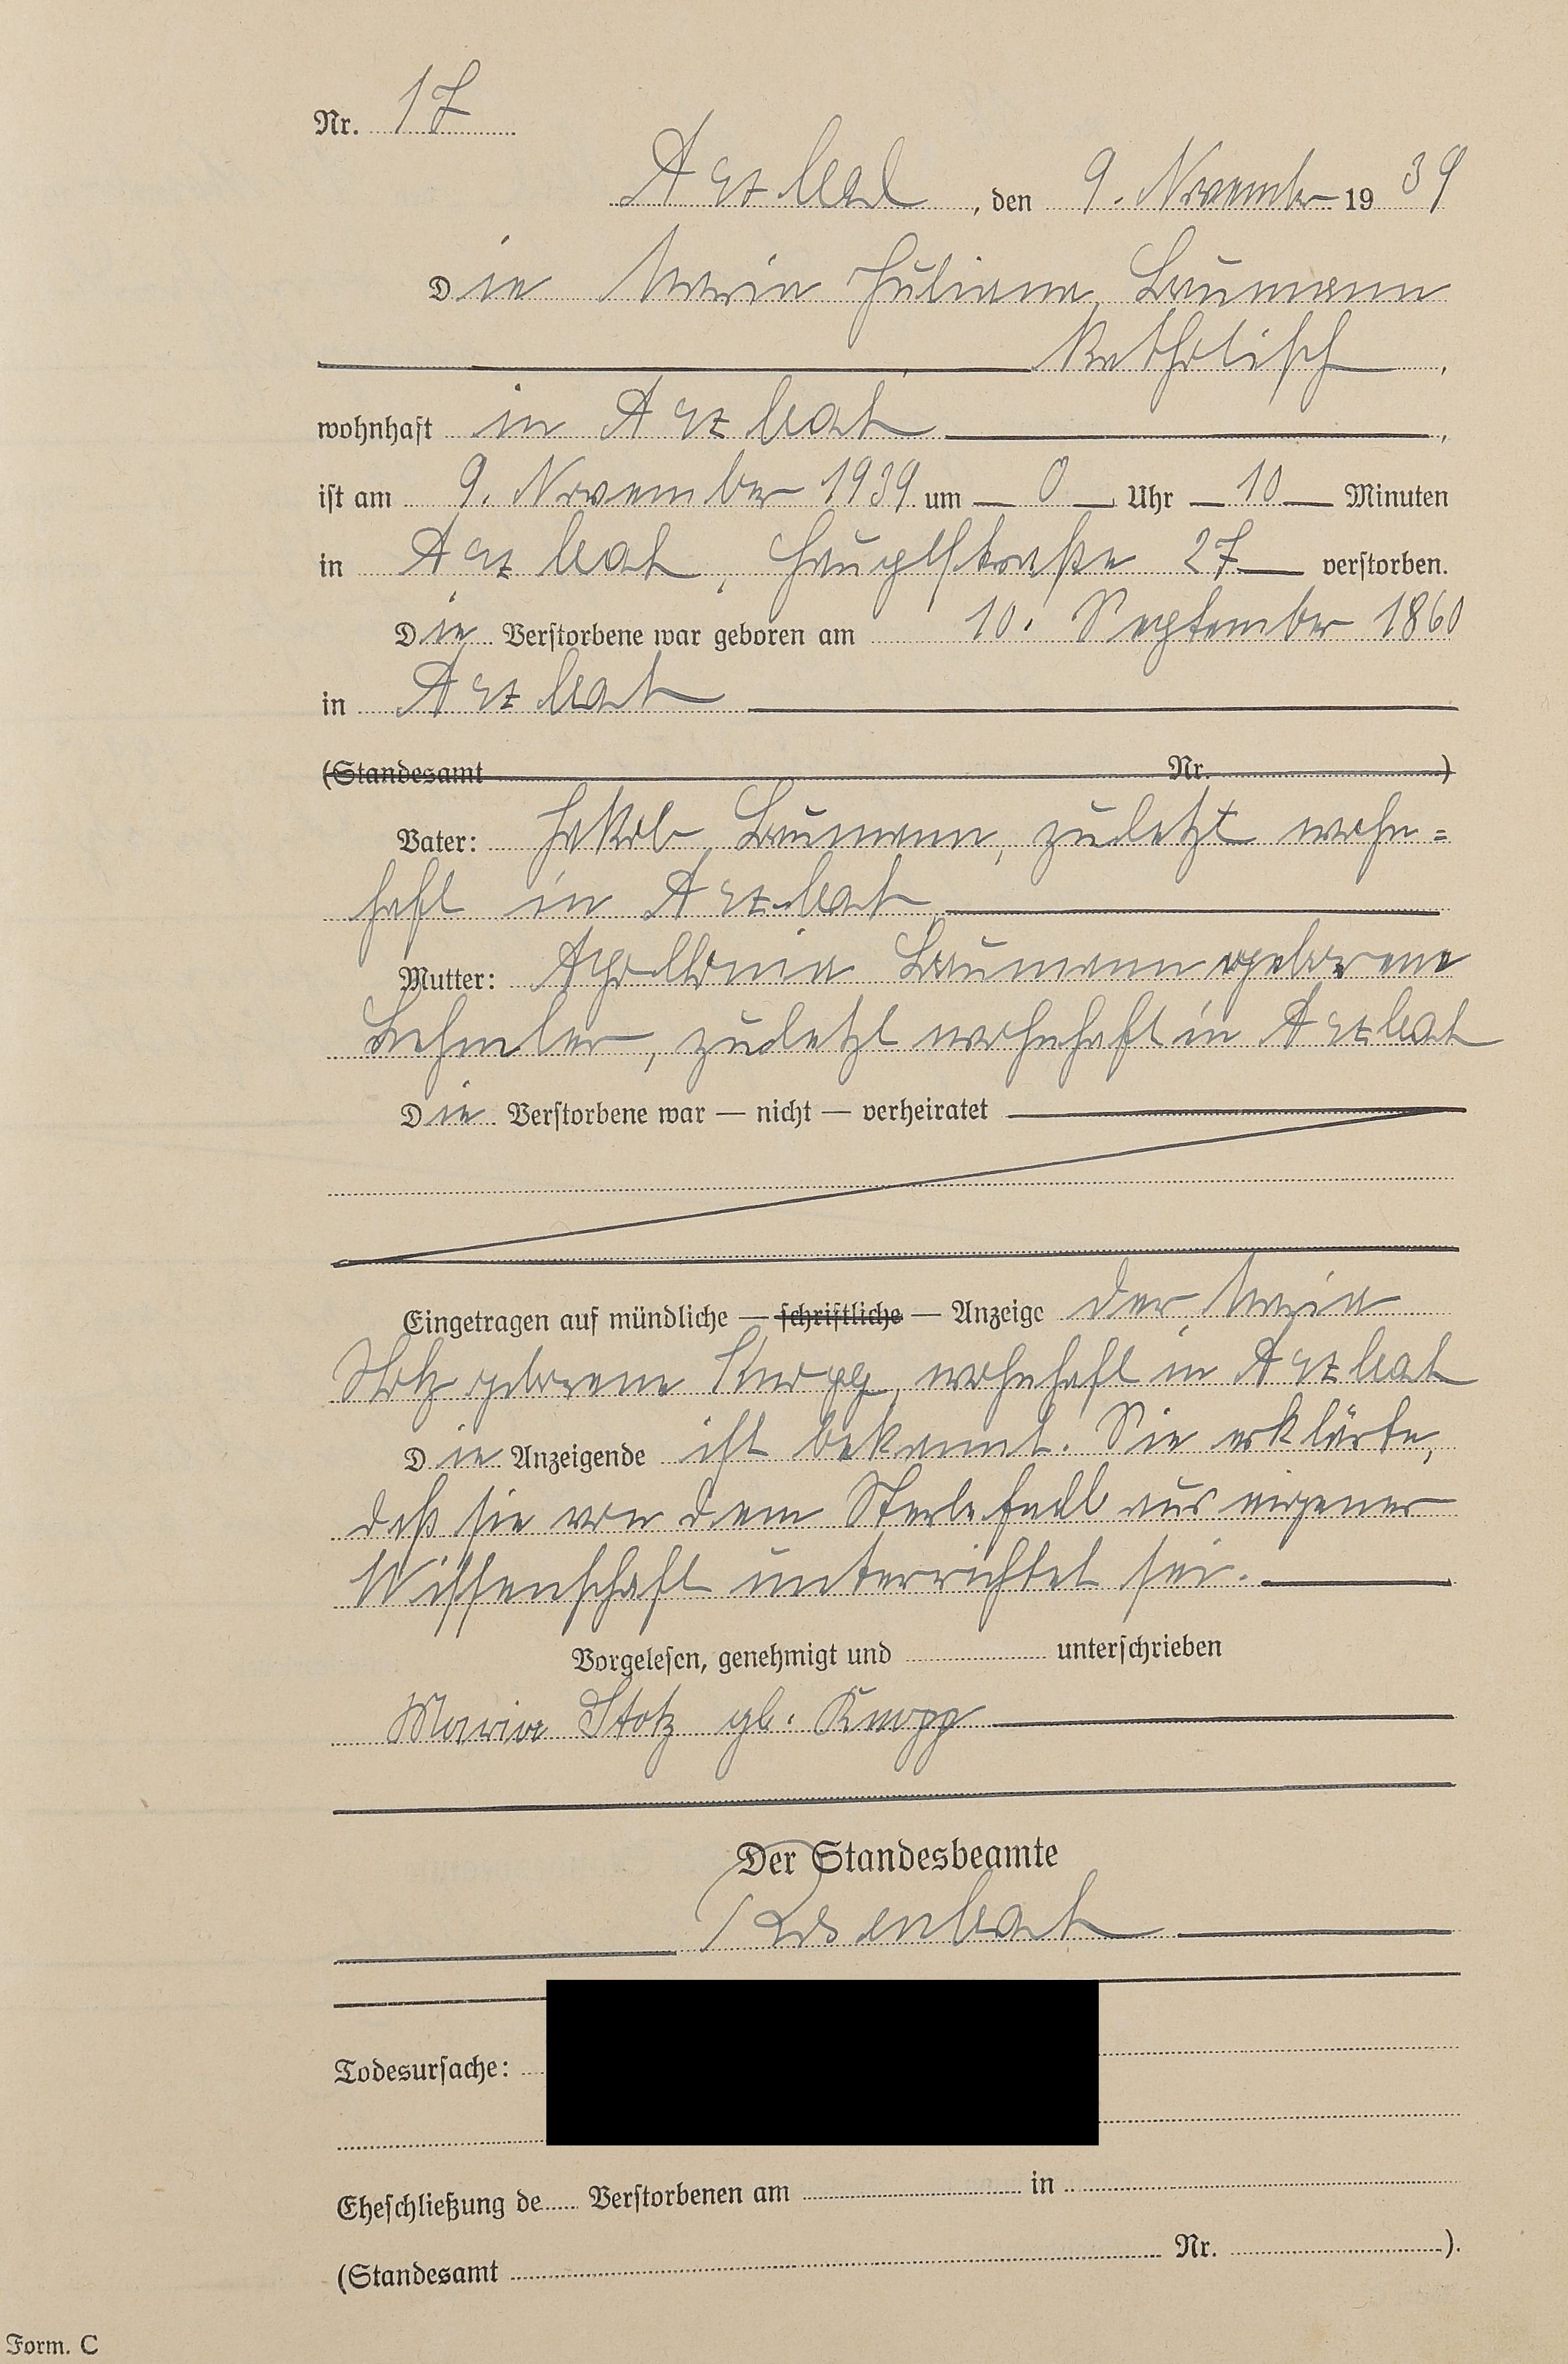 Nr. 17
Arzbach, den 9. November 1939
Die Maria Juliana Baumann
katholisch,
wohnhaft in Arzbach,
ist am 9. November 1939 um 0 Uhr 10 Minuten
in Arzbach, Hauptstraße 27 verstorben.
Die Verstorbene war geboren am 10. September 1860
in Arzbach
(Standesamt Nr. )
Vater: Jakob Baumann, zuletzt wohn=
haft in Arzbach
Mutter: Apollonia Baumann geborene
, zuletzt wohnhaft in Arzbach
Die Verstorbene war — nicht — verheiratet
Eingetragen auf mündliche — schriftliche — Anzeige der Maria
Stotz geborene Knopp, wohnhaft in Arzbach
Die Anzeigende ist bekannt. Sie erklärte,
daß sie von dem Sterbefall aus eigener
Wissenschaft unterrichtet sei.
Vorgelesen, genehmigt und unterschrieben
Maria Stotz gb. Knopp
Der Standesbeamte
Todesursache:
Eheschließung de Verstorbenen am in
(Standesamt Nr. ).
Form. C